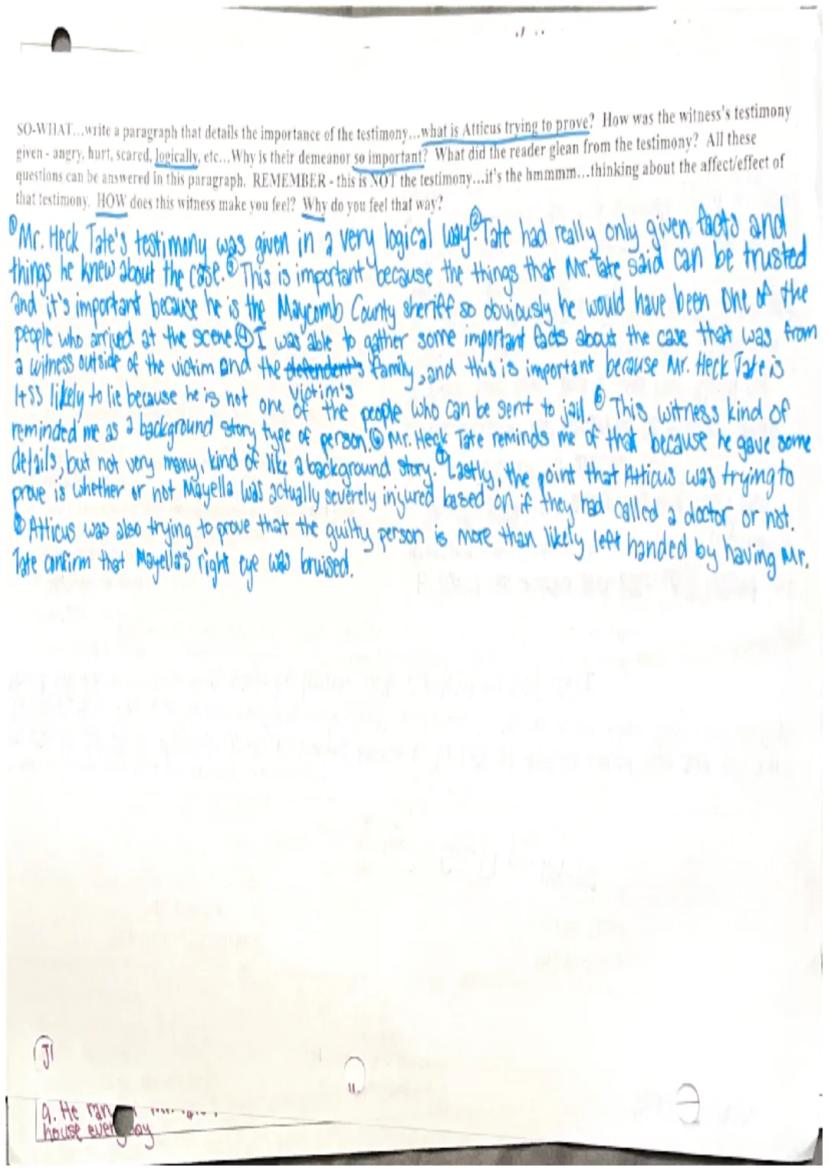 SO-WHAT...write a paragraph that details the importance of the testimony...what is Atticus trying to prove? How was the witness's testimony
given - angry, hurt, scared, logically, etc...Why is their demeanor so important? What did the reader glean from the testimony? All these
questions can be answered in this paragraph. REMEMBER - this is NOT the testimony...it's the hmmmm...thinking about the affect/effect of
that testimony. HOW does this witness make you feel? Why do you feel that way?
① Mr. Heck Tate's testimony was given in a very logical way. ② Tate had really only given facts and
things he knew about the case. ③ This is important because the things that Mr. Tate said can be trusted
and it's important because he is the Maycomb County sheriff so obviously he would have been one of the
people who arrived at the scene. ④ I was able to gather some important facts about the case that was from
a witness outside of the victim and the defendent's family, and this is important because Mr. Heck Tate is
victim's
less likely to lie because he is not one of the people who can be sent to jail. ⑤ This witness kind of
reminded me as a background story type of person. ⑥ Mr. Heck Tate reminds me of that because he gave some
details, but not very many, kind of like a background story. ⑦ Lastly, the point that Atticus was trying to
prove is whether or not Mayella was actually severely injured based on if they had called a doctor or not.
⑧ Atticus was also trying to prove that the guilty person is more than likely left handed by having Mr.
Tate confirm that Mayella's right eye was bruised.
9. He ran
house everyday